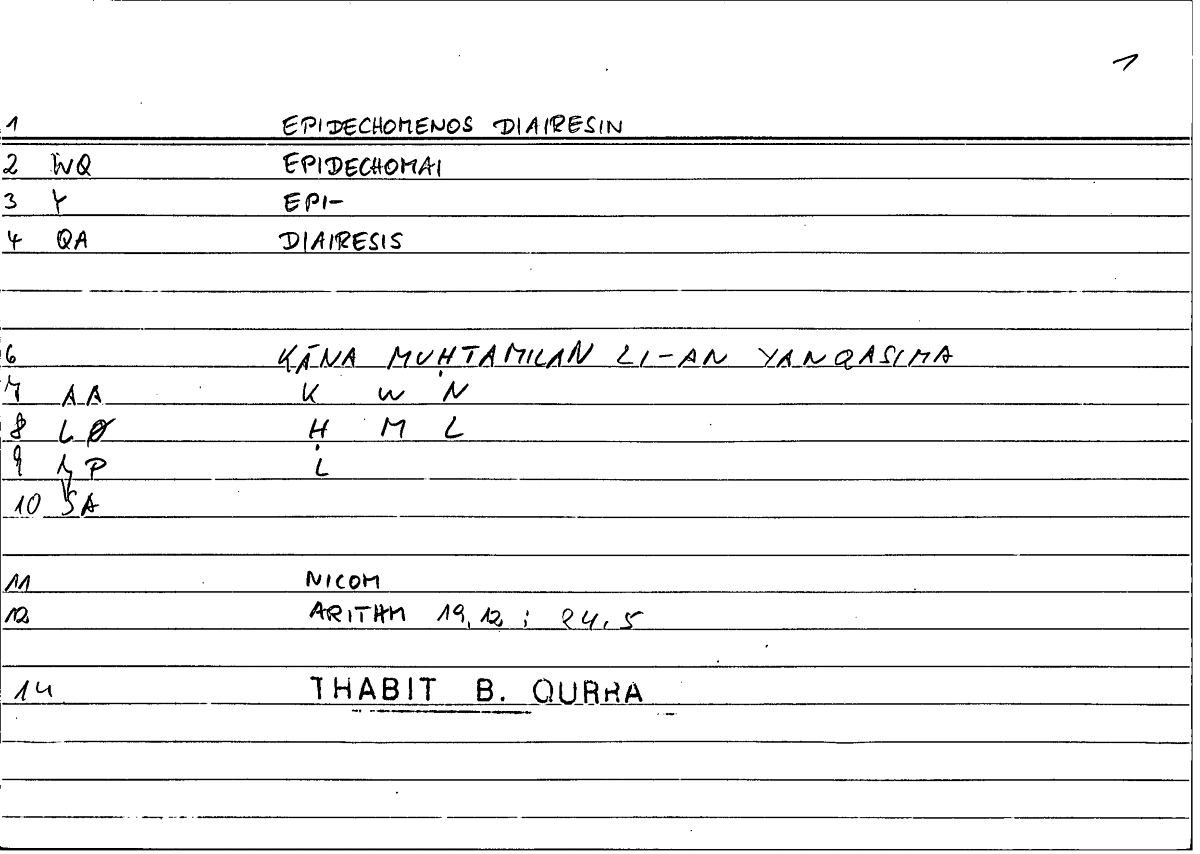 1
1 EPIDECHOMENOS DIAIRESIN
2 WQ EPIDECHOMAI
3 Y EPI-
4 QA DIAIRESIS
6 KĀNA MUḤTAMILAN LI-AN YANQASIMA
7 AA K W N
8 LØ Ḥ M L
9 P L
10 SA
11 NICOM
12 ARITHM 19,12 ; 24,5
14 THABIT B. QURRA